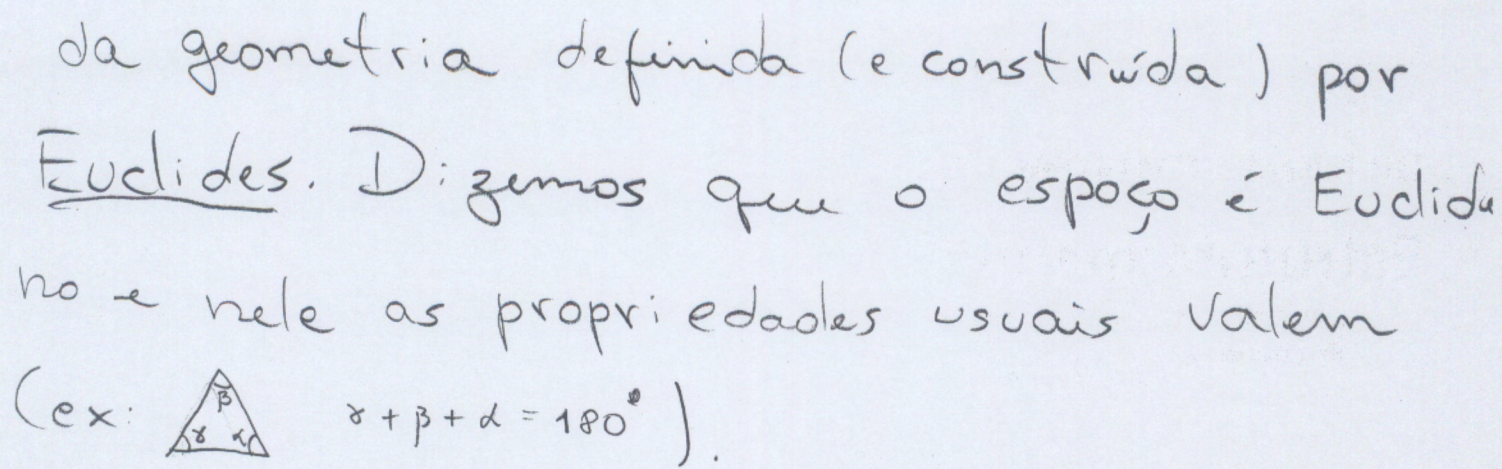 da geometria definida (e construída) por
Euclides. Dizemos que o espaço é Euclidia
no e nele as propriedades usuais valem
(ex: β γ α γ + β + α = 180°).